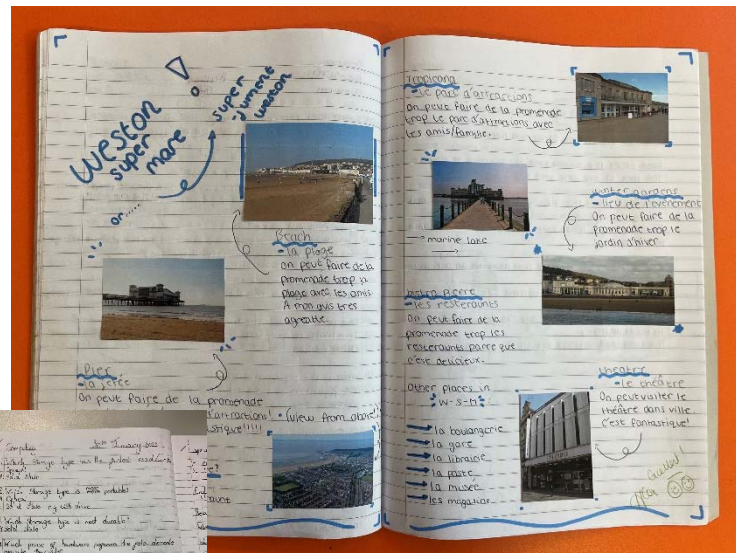 Weston
super
mare
!
super
-jument
weston
or.....
Beach
- la plage
On peut faire de la
promenade trop la
plage avec les amis.
A mon avis tres
agreable.
Pier
- la jetée
On peut faire de la promenade
d'attractions!
(view from above!)
stique!!!!!
Tropicana
- le parc d'attractions
On peut faire de la promenade
trop le parc d'attractions avec
les amis/famille.
marine lake
winter gardens
- lieu de l'evenement
On peut faire de la
promenade trop le
jardin d'hiver
bistro pierre
- les resteraunts
On peut faire de la
promenade trop les
resteraunts parce que
c'est delicieux.
other places in
W-S-M
la boulangerie
la gare
la librairie
la poste
la musée
les magasins
theatre
- le théâtre
On peut visiter le
théâtre dans ville
c'est fantastique!
Computing
Which storage type is most portable?
Which storage type is most durable?
Solid state